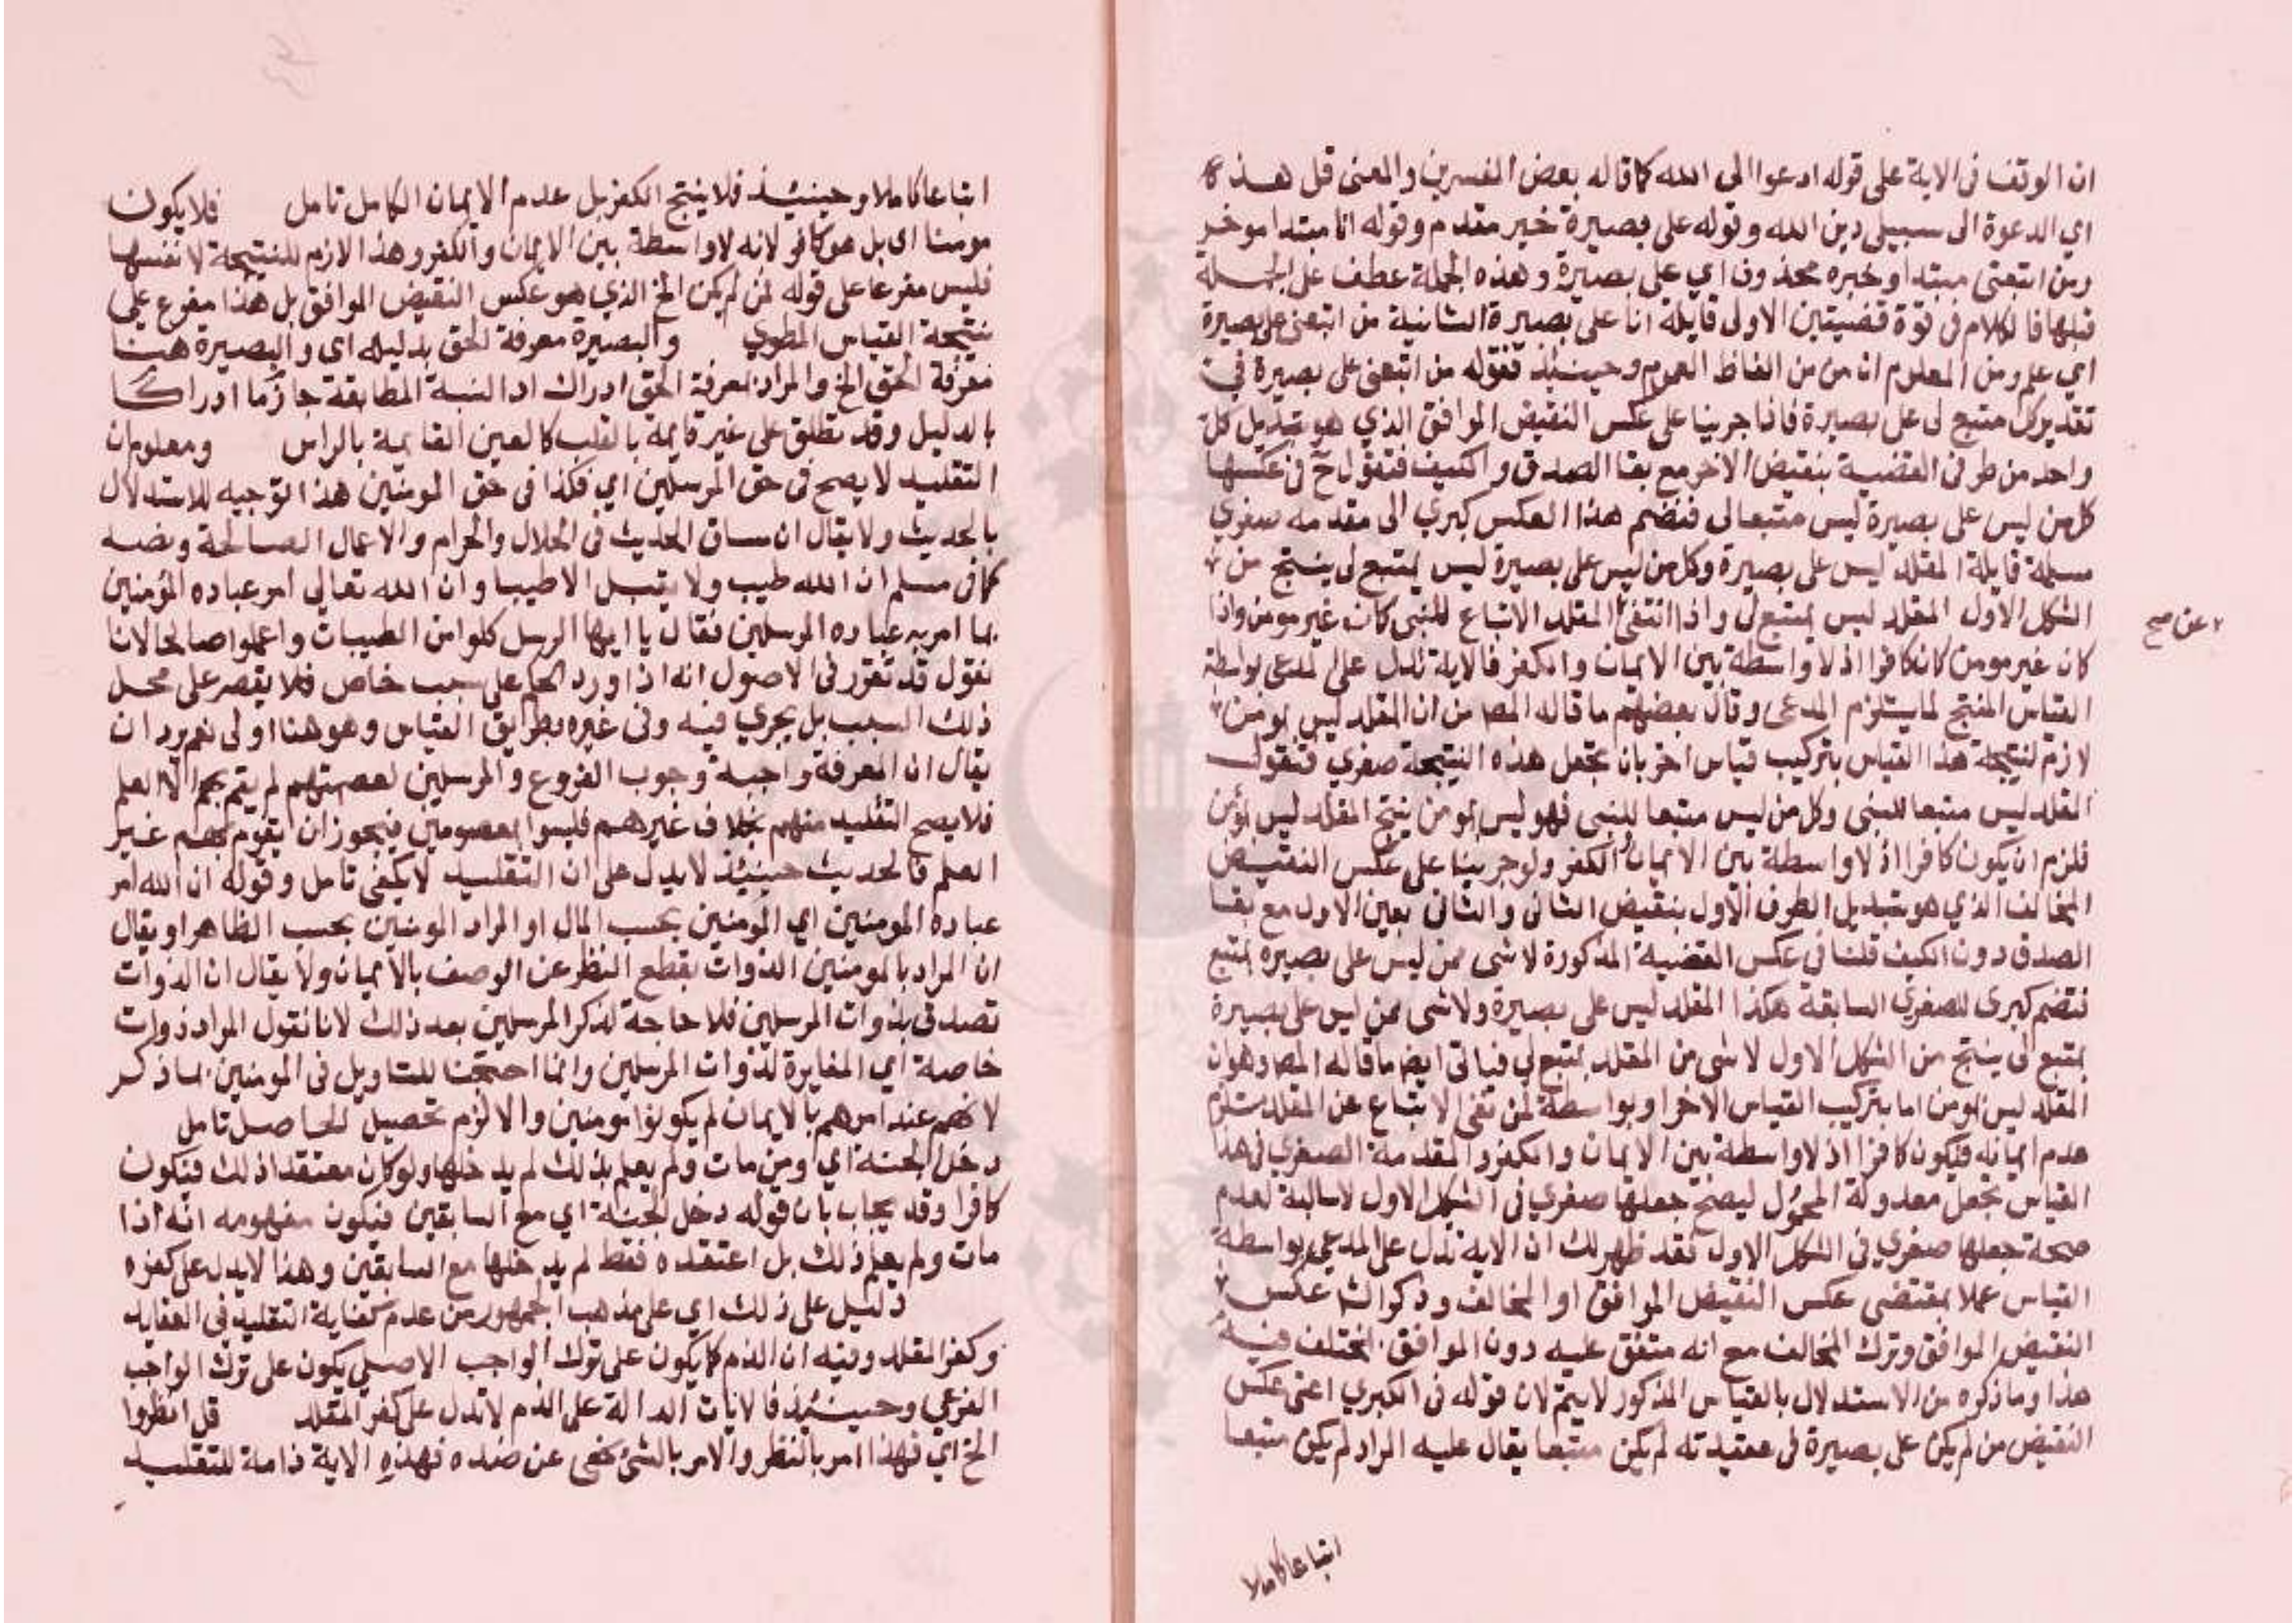 ان الوقف في الاية على قوله ادعوا الى الله كما قاله بعض المفسرين والمعنى قل هذه
اي الدعوة الى سبيلي دين الله وقوله على بصيرة خبر مقدم وقوله انا مبتدا موخر
ومن اتبعني مبتدا وخبره محذوف اي على بصيرة وهذه الجملة عطف على الجملة
قبلها فالكلام في قوة قضيتين الاولى قايلة انا على بصيرة الثانية من اتبعني على بصيرة
اي علم ومن المعلوم ان من من الفاظ العموم وحينيذ فقوله من اتبعني على بصيرة في
تقدير كل متبع لي على بصيرة فاذا جرينا على عكس النقيض الموافق الذي هو تبديل كل
واحد من طرفي القضية بنقيض الاخر مع بقا الصدق والكيف فتقول ح في عكسها
كل من ليس على بصيرة ليس متبعا لي فنضم هذا العكس كبري الى مقدمة صغري
مسلمة قايلة المقلد ليس على بصيرة وكل من ليس على بصيرة ليس بمتبع لي ينتج من
الشكل الاول المقلد ليس بمتبع لي واذا انتفى المقلد الاتباع للنبي كان غير مومن واذا
عن صح
كان غير مومن كان كافرا اذ لا واسطة بين الايمان والكفر فالاية تدل على المدعى بواسطة
القياس المنتج لما يستلزم المدعى وقال بعضهم ما قاله المص من ان المقلد ليس بمومن
لازم لنتيجة هذا القياس بتركيب قياس اخر بان تجعل هذه النتيجة صغري فتقول
المقلد ليس متبعا للنبي وكل من ليس متبعا للنبي فهو ليس بمومن ينتج المقلد ليس بمومن
فلزم ان يكون كافرا اذ لا واسطة بين الايمان والكفر ولو جرينا على عكس النقيض
المخالف الذي هو تبديل الطرف الاول بنقيض الثاني والثاني بعين الاول مع بقا
الصدق دون الكيف قلنا في عكس القضية المذكورة لا شى ممن ليس على بصيرة بمتبع
فتضم كبرى للصغري السابقة هكذا المقلد ليس على بصيرة ولا شى ممن ليس على بصيرة
بمتبع لي ينتج من الشكل الاول لا شى من المقلد بمتبع لي فياتي ايض ما قاله المص وهو ان
المقلد ليس بمومن اما بتركيب القياس الاخر او بواسطة ان نفى الاتباع عن المقلد يستلزم
عدم ايمانه فيكون كافرا اذ لا واسطة بين الايمان والكفر والمقدمة الصغري في هذا
القياس تجعل معدولة المحمول ليصح جعلها صغري في الشكل الاول لا سالبة لعدم
صحة جعلها صغري في الشكل الاول فقد ظهر لك ان الاية تدل على المدعى بواسطة
القياس عملا بمقتضى عكس النقيض الموافق او المخالف وذكر الش عكس
النقيض الموافق وترك المخالف مع انه متفق عليه دون الموافق المختلف فيه
هذا وما ذكره من الاستدلال بالقياس المذكور لا يتم لان قوله في الكبري اعنى عكس
النقيض من لم يكن على بصيرة في عقيدته لم يكن متبعا يقال عليه المراد لم يكن متبعا
اتباعا كاملا
اتباعا كاملا وحينيذ فلا ينتج الكفر بل عدم الايمان الكامل تامل فلا يكون
مومنا اى بل هو كافر لانه لا واسطة بين الايمان والكفر وهذا لازم للنتيجة لا نفسها
فليس مفرعا على قوله لمن لم يكن الخ الذي هو عكس النقيض الموافق بل هذا مفرع على
نتيجة القياس المطوي والبصيرة معرفة الحق بدليله اى والبصيرة هنا
معرفة الحق الخ والمراد بمعرفة الحق ادراك النسبة المطابقة جازما ادراكا
بالدليل وقد تطلق على غيره قايمة بالقلب كالعين القايمة بالراس ومعلوم ان
التقليد لا يصح في حق المرسلين اي فكذا في حق المومنين هذا توجيه للاستدلال
بالحديث ولا يقال ان مساق الحديث في الحلال والحرام والاعمال الصالحة ونصه
كما في مسلم ان الله طيب ولا يقبل الا طيبا وان الله تعالى امر عباده المؤمنين
بما امر به عباده المرسلين فقال يا ايها الرسل كلوا من الطيبات واعملوا صالحا لانا
نقول قد تقرر في الاصول انه اذا ورد الحكم على سبب خاص فلا يقصر على محل
ذلك السبب بل يجري فيه وفي غيره بطريق القياس وهو هنا اولى نعم يرد ان
يقال ان المعرفة واجبة وجوب الفروع والمرسلين لعصمتهم لم يقم بهم الا العلم
فلا يصح التقليد منهم بخلاف غيرهم فليسوا بمعصومين فيجوز ان يقوم بهم غير
العلم فالحديث حينيذ لا يدل على ان التقليد لا يكفي تامل وقوله ان الله امر
عباده المومنين اي المومنين بحسب المال او المراد المومنين بحسب الظاهر او يقال
ان المراد بالمومنين الذوات بقطع النظر عن الوصف بالايمان ولا يقال ان الذوات
تصدق بذوات المرسلين فلا حاجة لذكر المرسلين بعد ذلك لانا نقول المراد ذوات
خاصة اي المغايرة لذوات المرسلين وانما احتجنا للتاويل في المومنين بما ذكر
لانهم عند امرهم بالايمان لم يكونوا مومنين والا لزم تحصيل الحاصل تامل
دخل الجنة اي ومن مات ولم يعلم بذلك لم يدخلها ولو كان معتقدا ذلك فيكون
كافرا وقد يجاب بان قوله دخل الجنة اي مع السابقين فيكون مفهومه انه اذا
مات ولم يعلم ذلك بل اعتقده فقط لم يدخلها مع السابقين وهذا لا يدل على كفره
دليل على ذلك اي على مذهب الجمهور من عدم كفاية التقليد في العقايد
وكفر المقلد وفيه ان الذم كما يكون على ترك الواجب الاصلي يكون على ترك الواجب
الفرعي وحينيذ فالايات الدالة على الذم لا تدل على كفر المقلد قل انظروا
الخ اي فهذا امر بالنظر والامر بالشئ نهى عن ضده فهذه الاية ذامة للتقليد